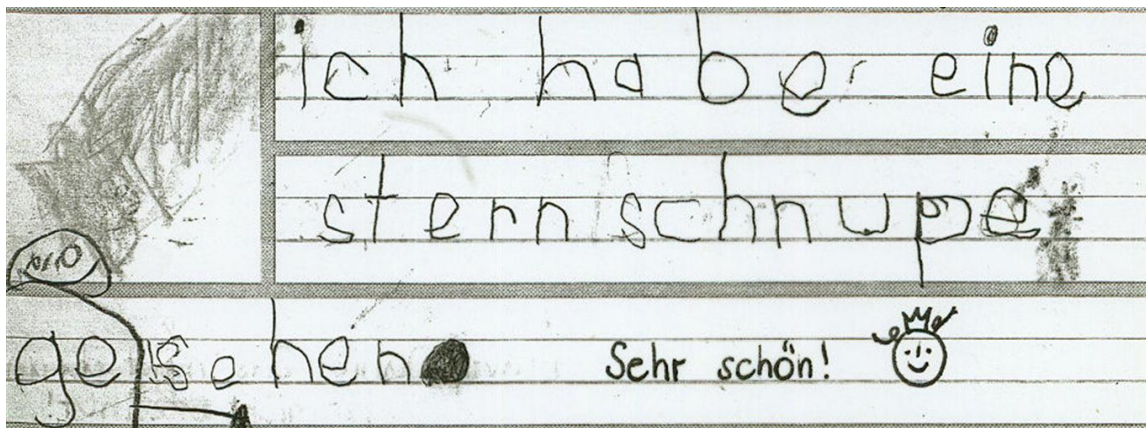 ich habe eine
sternschnupe
gesehen.
Sehr schön!